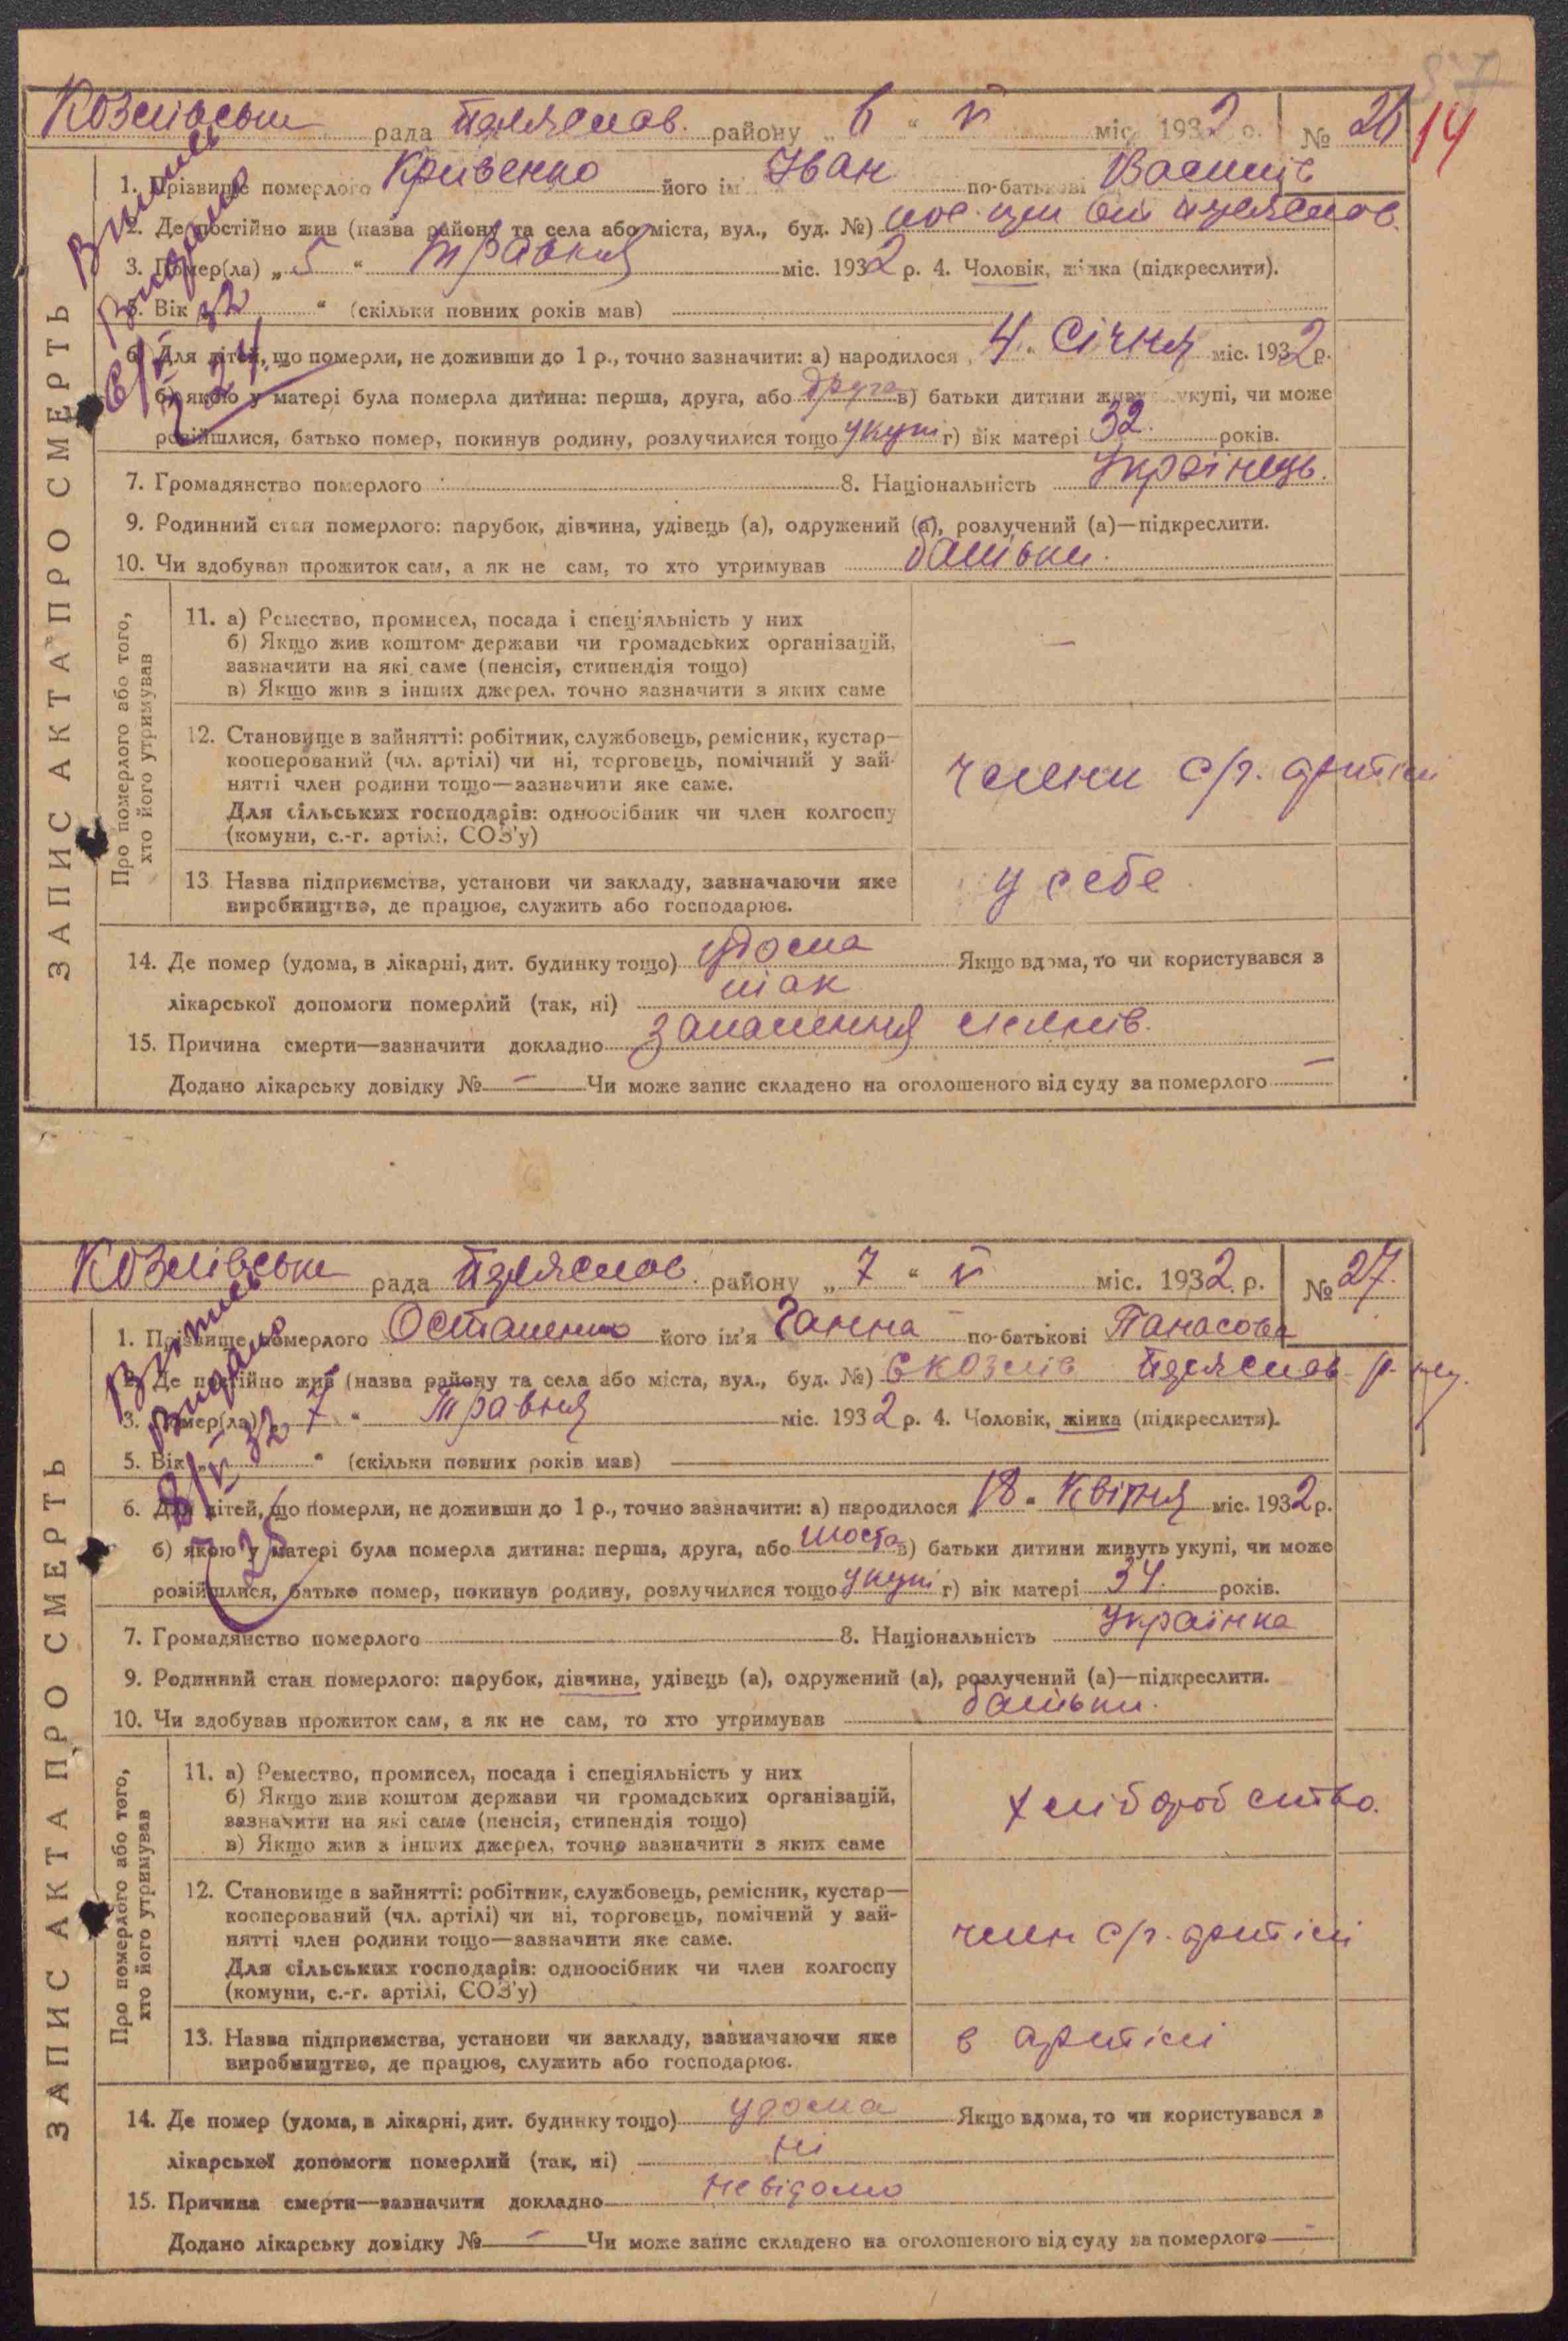 14
Козлівськ рада Переяслав. району „ 6 “ V міс. 1932 р. № 26
1. Прізвище померлого Кривенко його ім'я Іван по-батькові
2. Де постійно жив (назва району та села або міста, вул., буд. №)
3. Помер(ла) „ 5 “ травня міс. 1932 р. 4. Чоловік, жінка (підкреслити).
5. Вік „ “ (скільки повних років мав)
6. Для дітей, що померли, не доживши до 1 р., точно зазначити: а) народилося „ 4 “ Січня міс. 1932 р.
б) якою у матері була померла дитина: перша, друга, або друга в) батьки дитини живуть укупі, чи може
розійшлися, батько помер, покинув родину, розлучилися тощо укупі г) вік матері 32. років.
7. Громадянство померлого 8. Національність Українець.
9. Родинний стан померлого: парубок, дівчина, удівець (а), одружений (а), розлучений (а)—підкреслити.
10. Чи здобував прожиток сам, а як не сам, то хто утримував батьки.
11. а) Ремество, промисел, посада і спеціяльність у них
б) Якщо жив коштом держави чи громадських організацій,
зазначити на які саме (пенсія, стипендія тощо)
в) Якщо жив з інших джерел, точно зазначити з яких саме
—
12. Становище в зайнятті: робітник, службовець, ремісник, кустар—
кооперований (чл. артілі) чи ні, торговець, помічний у зай-
нятті член родини тощо—зазначити яке саме.
Для сільських господарів: одноосібник чи член колгоспу
(комуни, с.-г. артілі, СОЗ'у)
члени с/г. артілі
13 Назва підприємства, установи чи закладу, зазначаючи яке
виробництво, де працює, служить або господарює.
у себе
14. Де помер (удома, в лікарні, дит. будинку тощо) удома Якщо вдома, то чи користувався з
лікарської допомоги померлий (так, ні) так
15. Причина смерти—зазначити докладно запалення легенів.
Додано лікарську довідку № — Чи може запис складено на оголошеного від суду за померлого —
ЗАПИС АКТА ПРО СМЕРТЬ
Про померлого або того,
хто його утримував
Випись
Видано
6/V 32
24
Козлівськ рада Переяслав. району „ 7 “ V міс. 1932 р. № 27.
1. Прізвище померлого Осташенко його ім'я Ганна по-батькові Панасовна
2. Де постійно жив (назва району та села або міста, вул., буд. №) с Козлів Переяслав р.
3. Помер(ла) „ 7 “ Травня міс. 1932 р. 4. Чоловік, жінка (підкреслити).
5. Вік „ “ (скільки повних років мав)
6. Для дітей, що померли, не доживши до 1 р., точно зазначити: а) народилося „ 18 “ Квітня міс. 1932 р.
б) якою у матері була померла дитина: перша, друга, або шоста в) батьки дитини живуть укупі, чи може
розійшлися, батько помер, покинув родину, розлучилися тощо укупі г) вік матері 34. років.
7. Громадянство померлого 8. Національність Українка
9. Родинний стан померлого: парубок, дівчина, удівець (а), одружений (а), розлучений (а)—підкреслити.
10. Чи здобував прожиток сам, а як не сам, то хто утримував батьки.
11. а) Ремество, промисел, посада і спеціяльність у них
б) Якщо жив коштом держави чи громадських організацій,
зазначити на які саме (пенсія, стипендія тощо)
в) Якщо жив з інших джерел, точно зазначити з яких саме
хліборобство.
12. Становище в зайнятті: робітник, службовець, ремісник, кустар—
кооперований (чл. артілі) чи ні, торговець, помічний у зай-
нятті член родини тощо—зазначити яке саме.
Для сільських господарів: одноосібник чи член колгоспу
(комуни, с.-г. артілі, СОЗ'у)
член с/г. артілі
13. Назва підприємства, установи чи закладу, зазначаючи яке
виробництво, де працює, служить або господарює.
в артілі
14. Де помер (удома, в лікарні, дит. будинку тощо) удома Якщо вдома, то чи користувався з
лікарської допомоги померлий (так, ні) ні
15. Причина смерти—зазначити докладно невідомо
Додано лікарську довідку № — Чи може запис складено на оголошеного від суду за померлого —
ЗАПИС АКТА ПРО СМЕРТЬ
Про померлого або того,
хто його утримував
Выпись
Видано
8/V 32
25